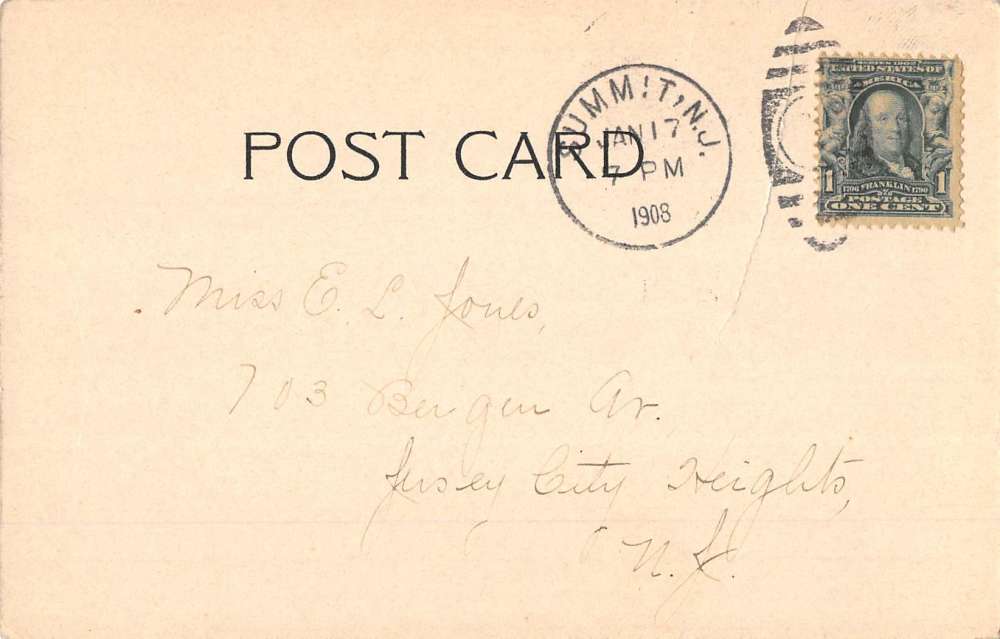 POST CARD
SUMMIT, N.J.
JAN 17
7 PM
1908
SERIES 1902
UNITED STATES OF
AMERICA
1 1706 FRANKLIN 1790 1
POSTAGE
ONE CENT
Miss E. L. Jones,
703 Bergen Av.
Jersey City Heights,
N. J.